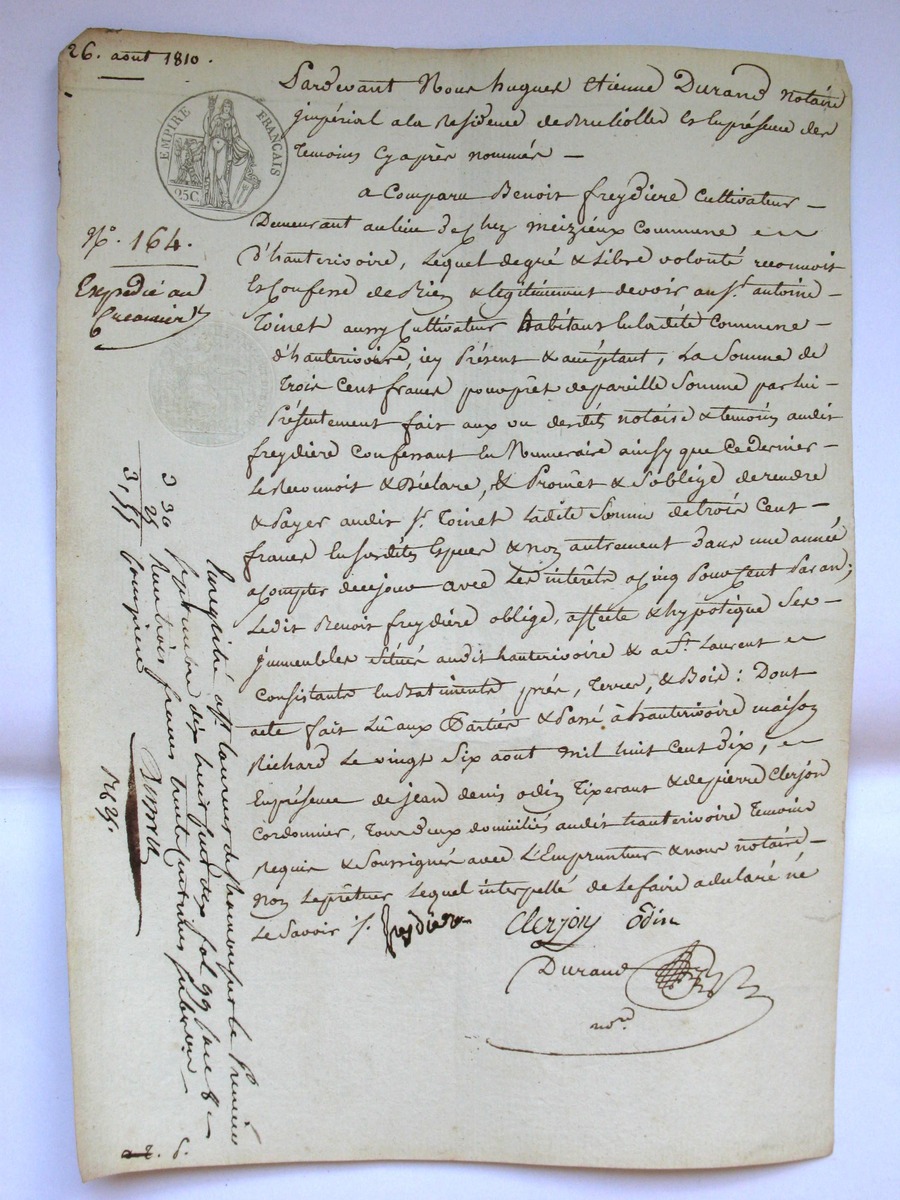 26. aout 1810.
EMPIRE FRANÇAIS
25C.
N.° 164.
Expédié au
Créancier
Pardevant Nous hugues Etienne Durand notaire
jmpérial a la Residence de Brullolles Et En présence des
temoins Cy après nommés —
a Comparu Benoit freydiere Cultivateur —
Demeurant au lieu de chez Meizieux Commune —
d'hauterivoire, Lequel de gré & Libre volonté reconnoit
Et Confesse de Bien & légitimement devoir au s.r antoine —
Toinet aussy Cultivateur habitant En la dite Commune —
d'hauterivoire icy Présent & acceptant, La Somme de
trois Cent francs pour prêt de pareille Somme par lui —
Présentement fait aux vu desdits notaire & temoins audit
freydière Confessant En Numeraire ainsy que Ce dernier —
Le Reconnoit & Déclare, & Promet & S'oblige de rendre
& Payer audit s.r Toinet Ladite Somme de trois Cent —
francs En susdites Espèces & non autrement Dans une année
a compter de ce jour avec Les intérêts a Cinq Pour Cent Par an;
Ledit Benoit freydière oblige, affecte & hypotèque Ses —
jmmeubles Situés audit hauterivoire & a S.t Laurent —
Consistants En Batiments prés, Terres, & Bois: Dont
acte fait Lû aux Parties & Passé à hauterivoire maison
Richard Le vingt Six aout mil huit Cent dix, —
En présence de jean denis odin Tixerant & de pierre Clerjon
Cordonnier, Tous deux domiciliés audit hauterivoire Temoins
Requis & Soussignés avec L'Emprunteur & nous notaire —
Non Le prêteur Lequel interpellé de Le faire a déclaré ne
Le Savoir /.
freydiere Clerjon Odin
Durand
no.re
Enregistré a St Laurent de Chamousset le Premier
Septembre dix huit cent dix fol. 99 Case 8 —
Reçu trois francs trente centimes Subvon —
Comprise
3 30
25
3,55